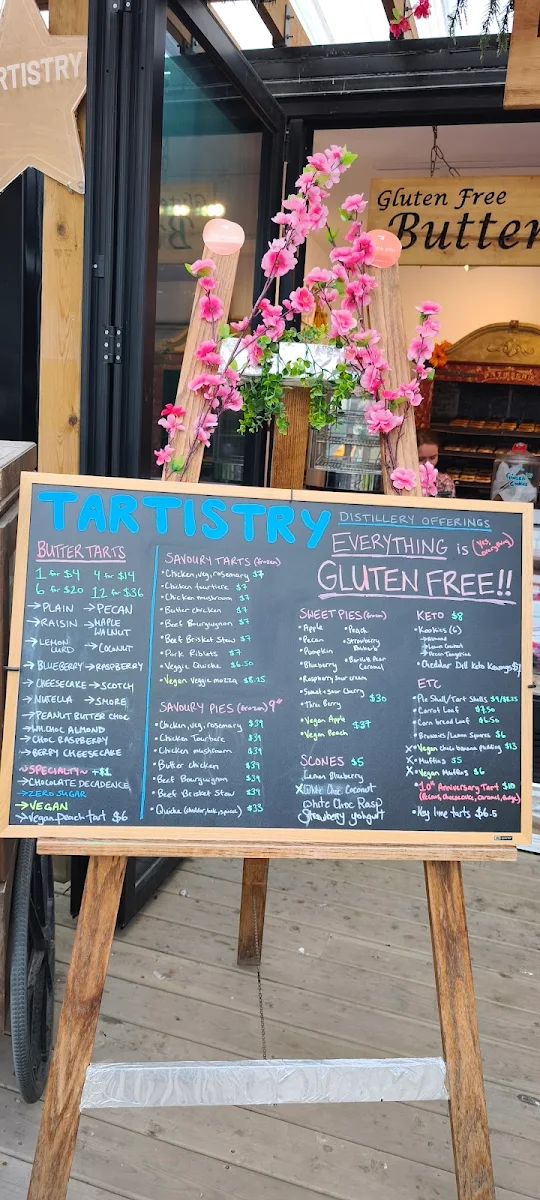 RTISTRY
Gluten Free
Butter
TARTISTRY
DISTILLERY OFFERINGS
EVERYTHING is (yes, everything)
GLUTEN FREE!!
BUTTERTARTS
1 for $4 4 for $14
6 for $20 12 for $36
→PLAIN →PECAN
→RAISIN →MAPLE WALNUT
→LEMON CURD →COCONUT
→BLUEBERRY →RASPBERRY
→CHEESECAKE →SCOTCH
→NUTELLA →SMORE
→PEANUT BUTTER CHOC
→WH.CHOC ALMOND
→CHOC RASPBERRY
→BERRY CHEESECAKE
~SPECIALTY~ +$1
→CHOCOLATE DECADENCE
→ZERO SUGAR
→VEGAN
→Vegan Peach tart $6
SAVOURY TARTS (frozen)
•Chicken, veg, rosemary $7
•Chicken tourtiere $7
•Chicken mushroom $7
•Butter chicken $7
•Beef Bourguignon $7
•Beef Brisket Stew $7
•Pork Riblets $7
•Veggie Quiche $6.50
•Vegan veggie mozza $8.25
SAVOURY PIES (frozen) 9"
•Chicken, veg, rosemary $39
•Chicken Tourtiere $39
•Chicken mushroom $39
•Butter chicken $39
•Beef Bourguignon $39
•Beef Brisket Stew $39
•Quiche $33
SWEET PIES (frozen)
•Apple •Peach
•Pecan •Strawberry Rhubarb
•Pumpkin
•Blueberry •Bartlett Pear Caramel
•Raspberry sour cream
•Sweet + Sour Cherry
•Three Berry $30
•Vegan Apple
•Vegan Peach $37
SCONES $5
Lemon Blueberry
White Choc Coconut
White Choc Rasp
Strawberry yohgurt
KETO $8
•Kookies (6)
•Cheddar Dill keto
ETC
•Pie Shell/Tart Shells
•Carrot Loaf $7.50
•Corn bread Loaf $6.50
•Brownies/Lemon Squares $6
x•Vegan choc banana pudding $13
x•Muffins $5
x•Vegan Muffins $6
•10th Anniversary Tart $10
(Pecans, chococake, caramel, fudge)
•Key lime tarts $6.5